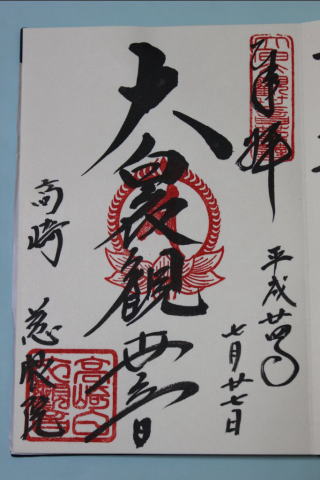 奉拝
平成廿四年
七月廿七日
大白衣観世音
高崎 慈眼院